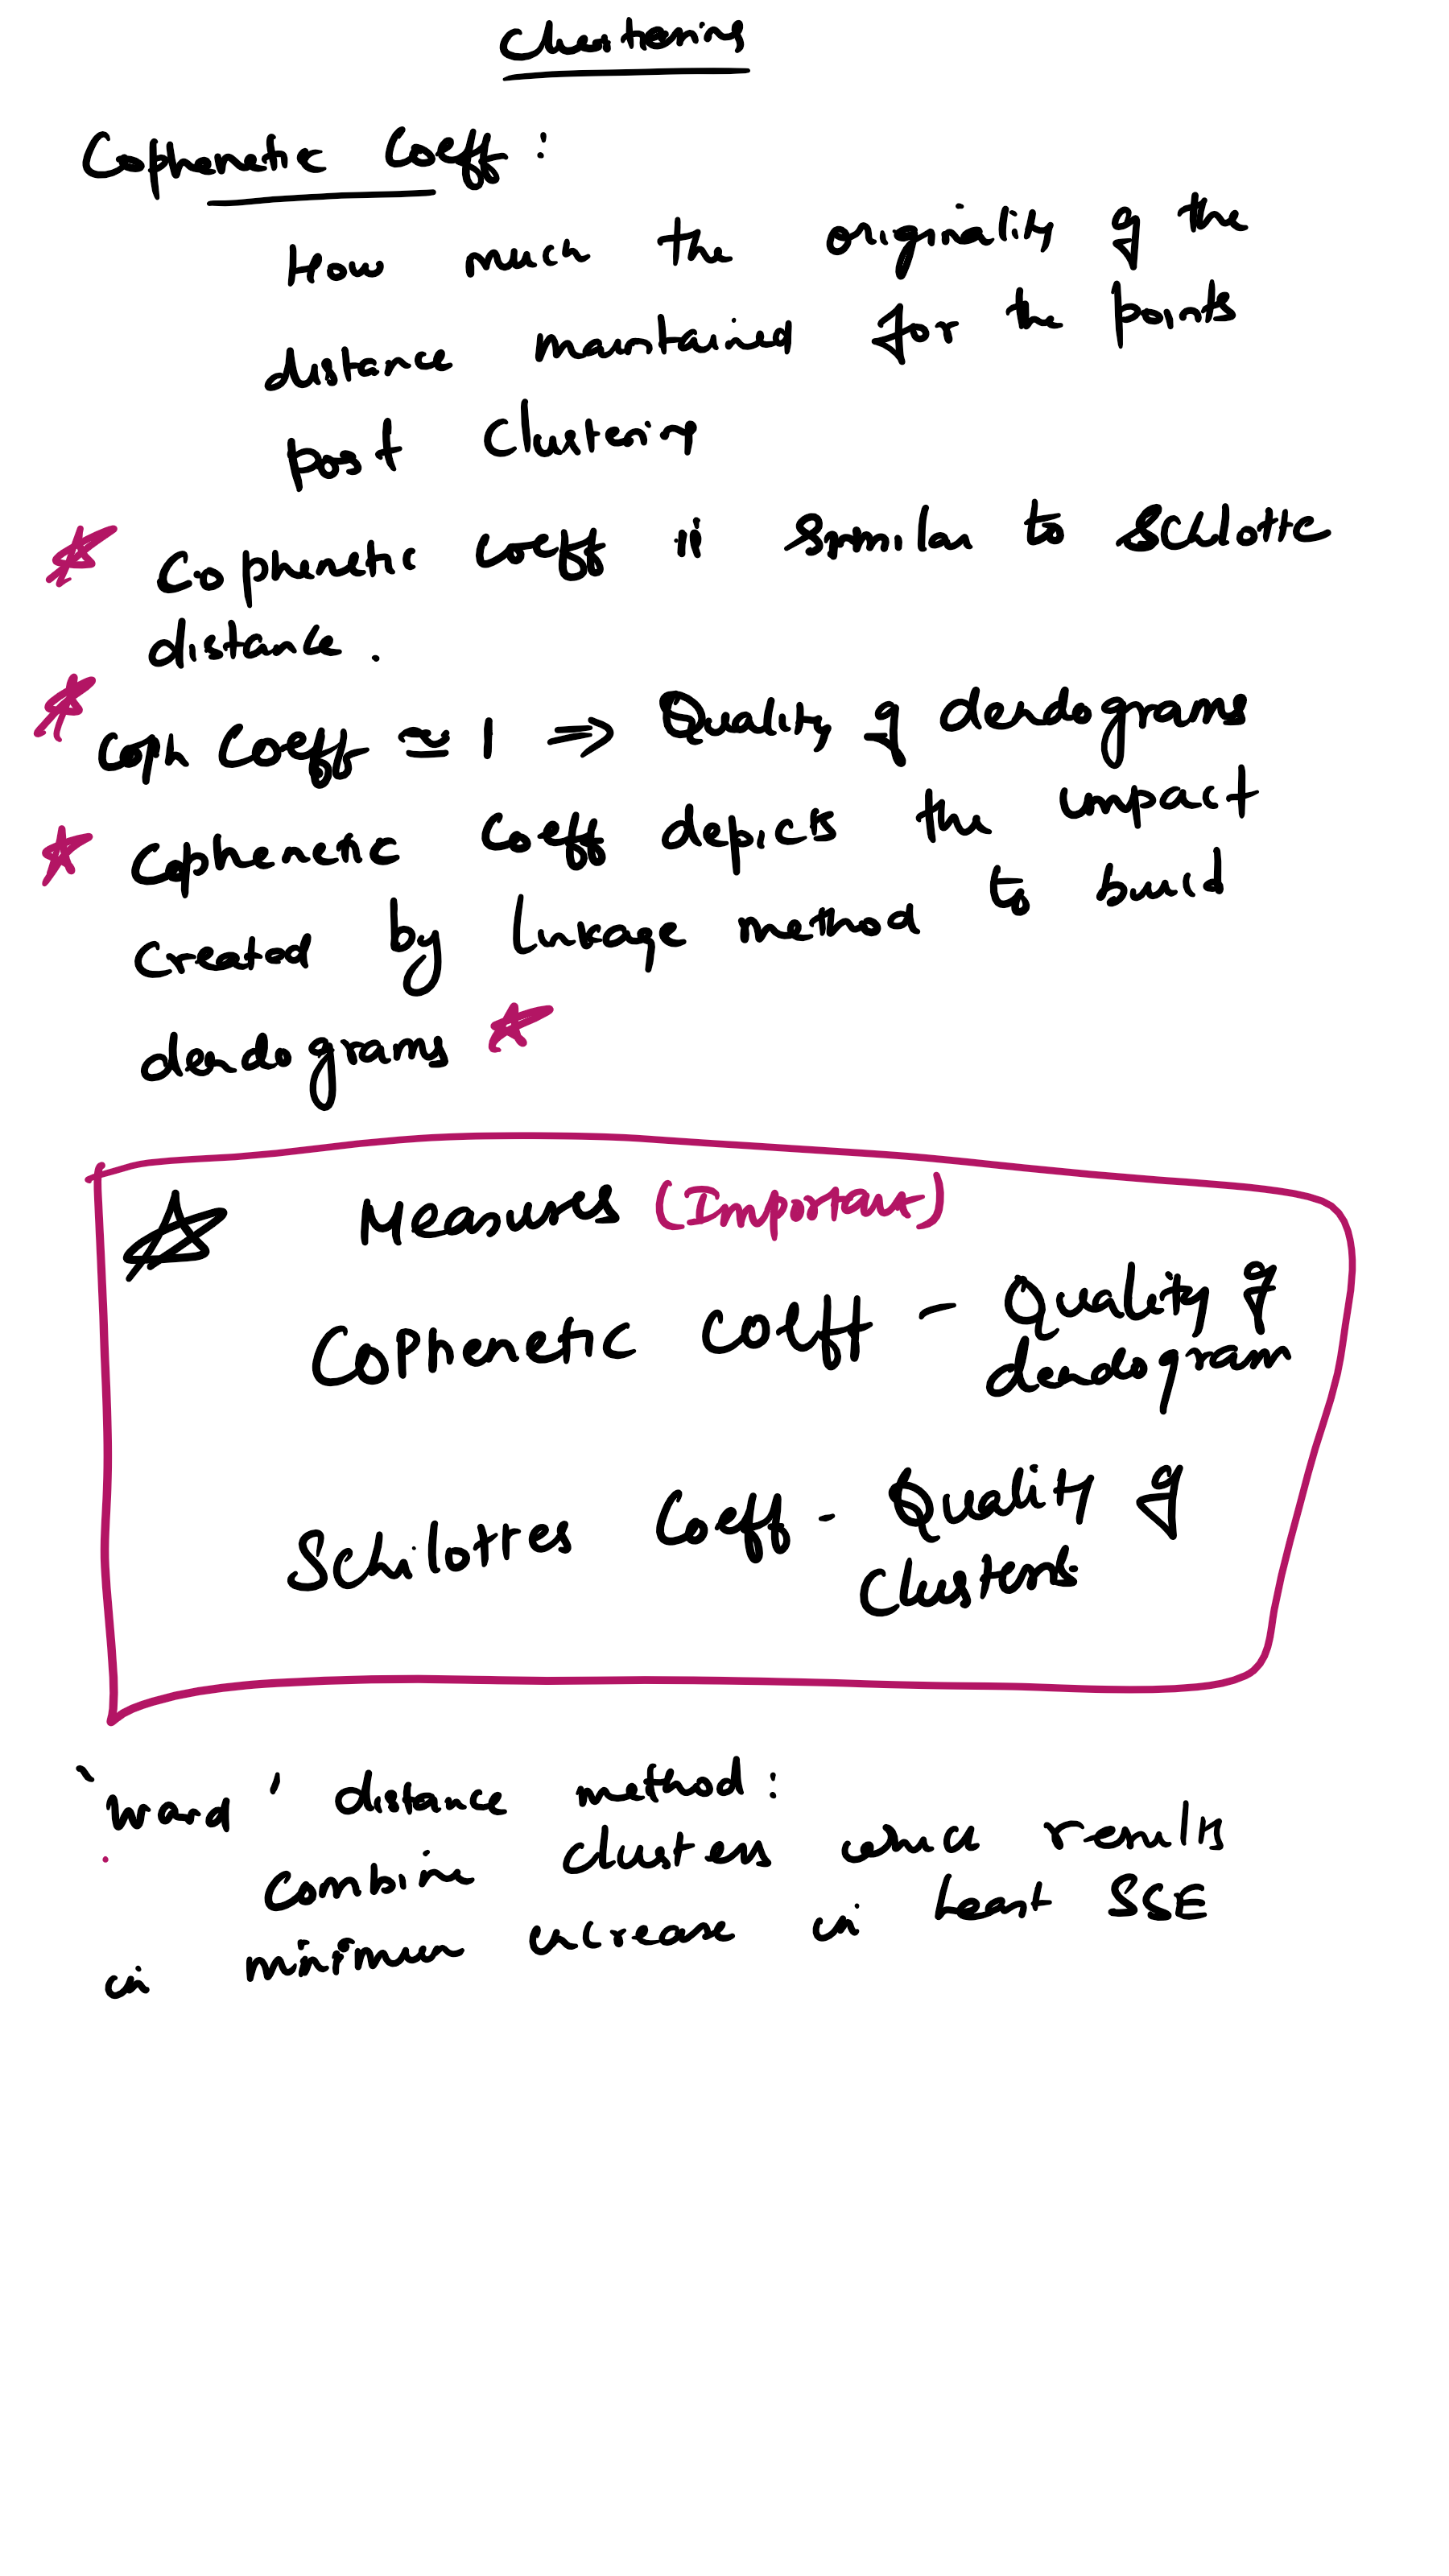 Clustering
Cophenetic Coeff :
How much the originality of the
distance maintained for the points
post Clustering
Cophenetic Coeff is Similar to Schlotte
distance .
Coph Coeff ≃ 1 ⇒ Quality of dendograms
Cophenetic Coeff depicts the impact
Created by linkage method to build
dendograms
Measures (Important)
Cophenetic Coeff - Quality of
dendogram
Schilottes Coeff - Quality of
Clusters
`Ward ' distance method :
Combine clusters which results
in minimum increase in least SSE